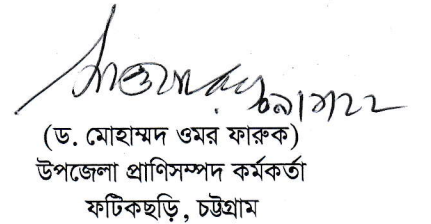 (ড. মোহাম্মদ ওমর ফারুক)
উপজেলা প্রাণিসম্পদ কর্মকর্তা
ফটিকছড়ি, চট্টগ্রাম